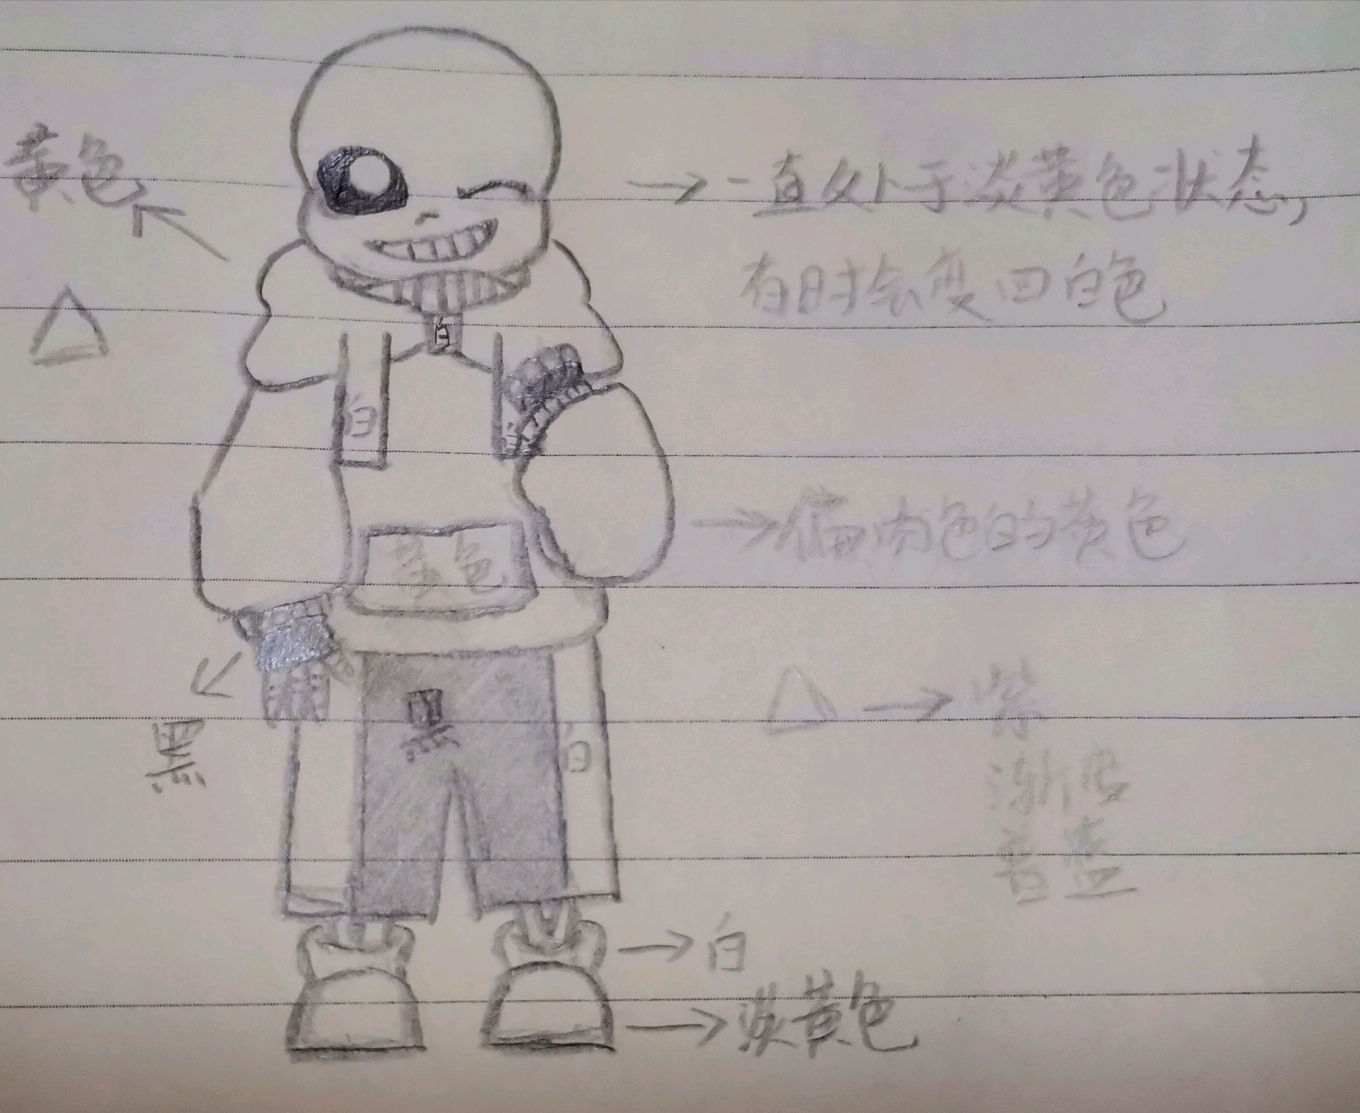 黄色
一直处于淡黄色状态,
有时会变回白色
白
白
白
偏肉色的黄色
黄色
黑
白
黑
紫
渐变
普蓝
白
淡黄色